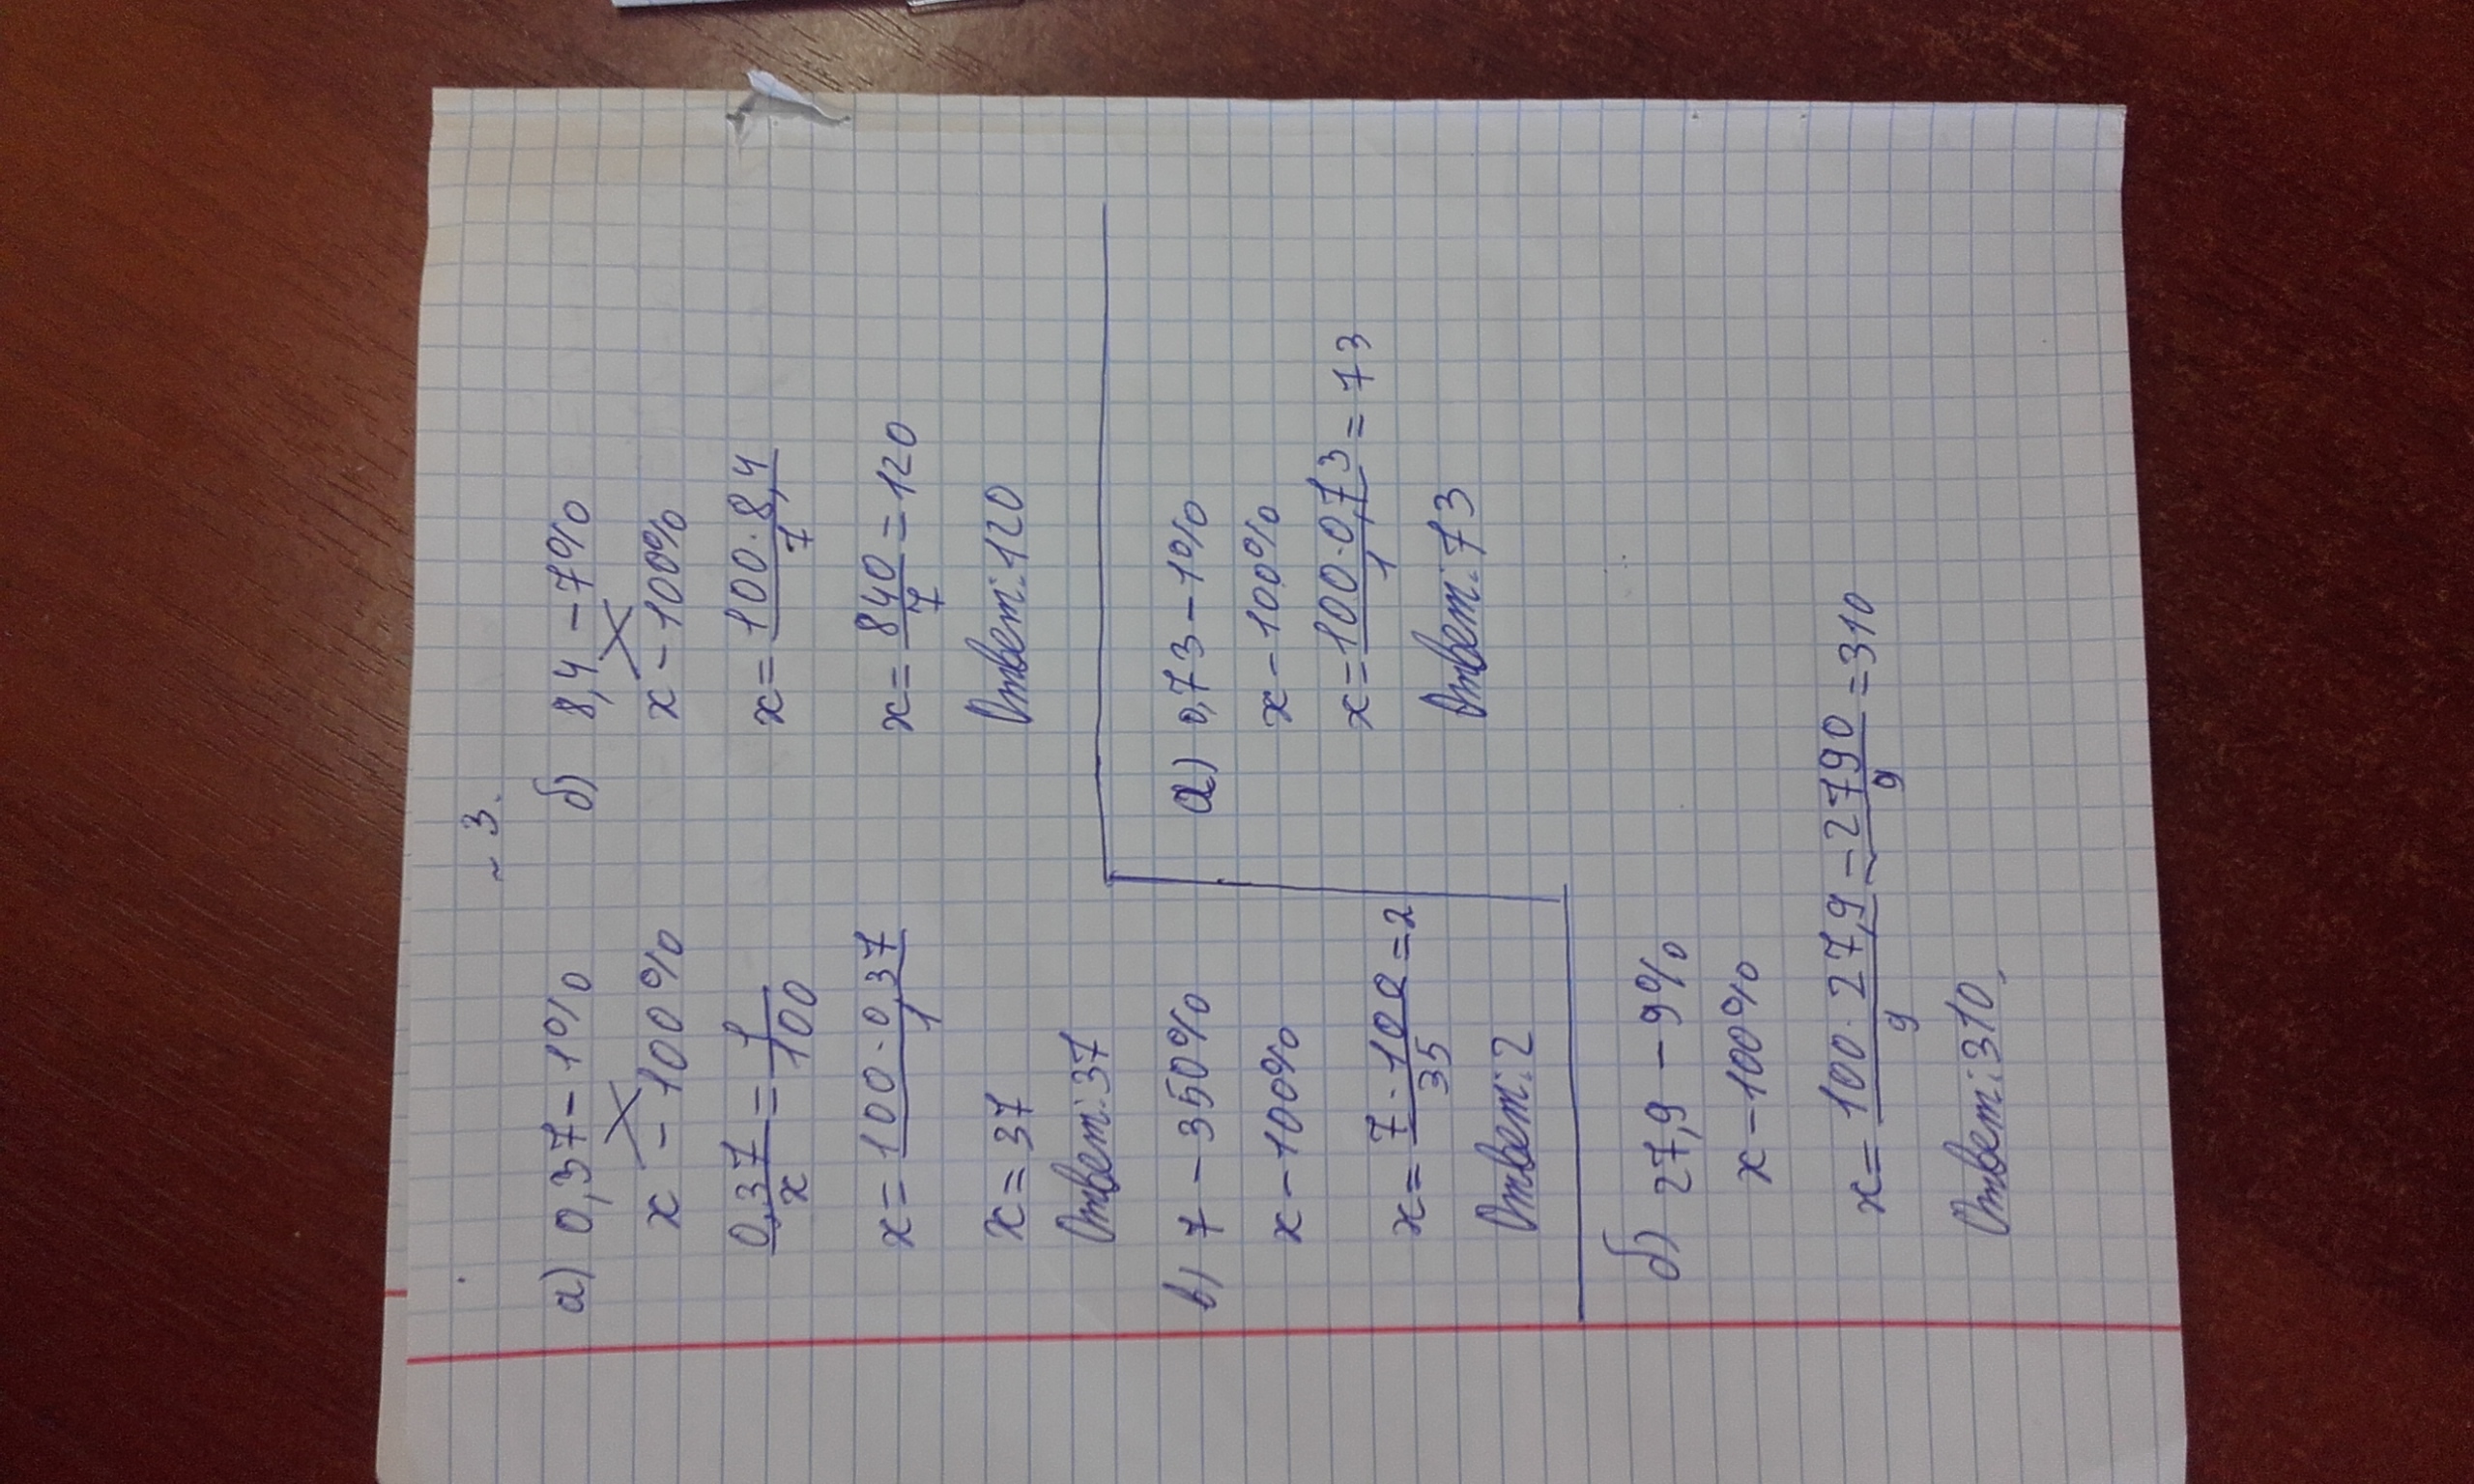 ~ 3.
а) 0,37 – 1%
х – 100%
0,37/х = 1/100
х = 100 · 0,37/1
х = 37
Ответ: 37
б) 8,4 – 7%
х – 100%
х = 100 · 8,4/7
х = 840/7 = 120
Ответ: 120
в) 7 – 350%
х – 100%
х = 7 · 100/35 = 2
Ответ: 2
а) 0,73 – 1%
х – 100%
х = 100 · 0,73/1 = 73
Ответ: 73
б) 27,9 – 9%
х – 100%
х = 100 · 27,9/9 = 2790/9 = 310
Ответ: 310,